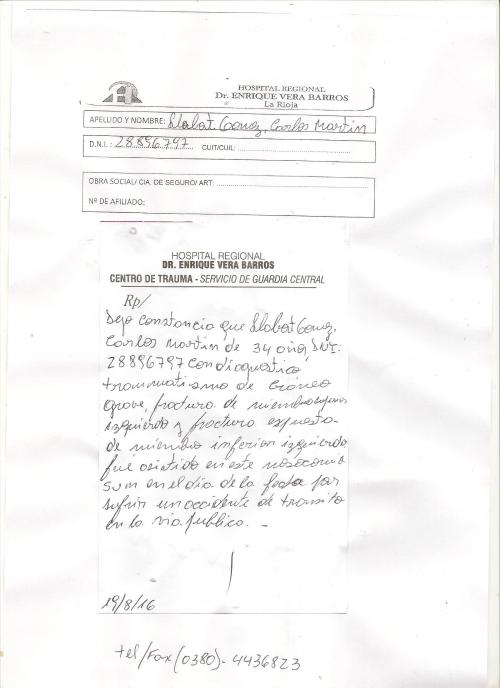 HOSPITAL REGIONAL
Dr. ENRIQUE VERA BARROS
La Rioja
APELLIDO Y NOMBRE: Llabot Gomez, Carlos Martin
D.N.I.: 28896797 CUIT/CUIL:
OBRA SOCIAL/ CIA. DE SEGURO/ ART:
Nº DE AFILIADO:
HOSPITAL REGIONAL
DR. ENRIQUE VERA BARROS
CENTRO DE TRAUMA - SERVICIO DE GUARDIA CENTRAL
Rp/
Dejo constancia que Llabot Gomez,
Carlos Martin de 34 años, DNI:
28896797 con diagnostico
traumatismo de craneo
grave, fractura de miembro superior
izquierdo y fractura expuesta
de miembro inferior izquierdo
fue asistido en este nosocomio
en el dia de la fecha por
sufrir un accidente de transito
en la via publica. -
19/8/16
tel/Fax (0380)- 4436823